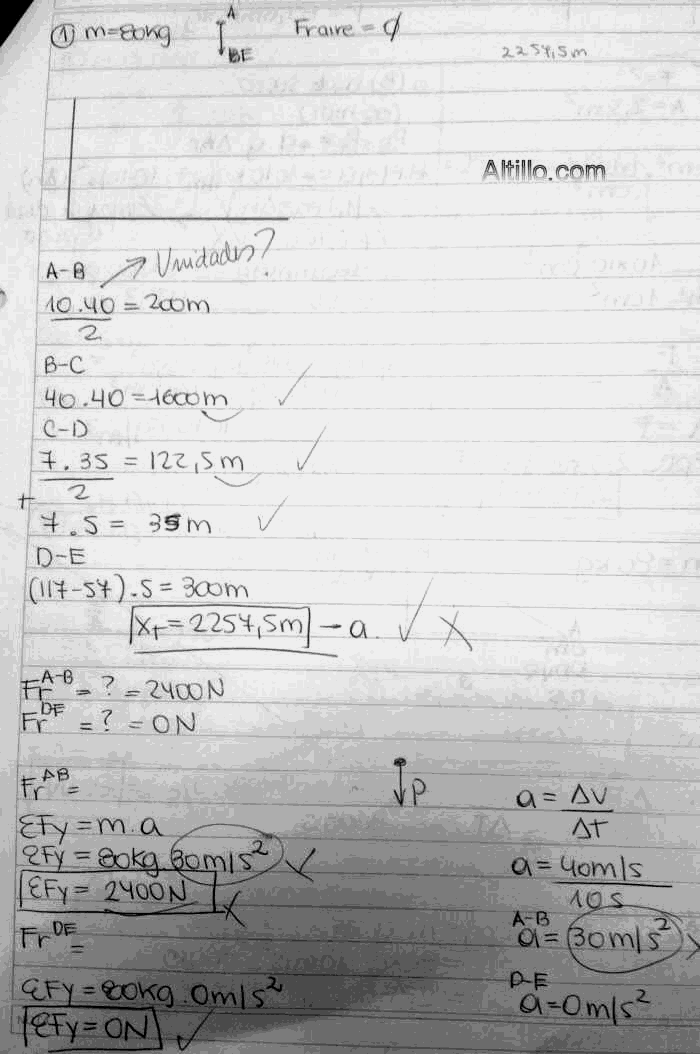 ① m=80kg A Fraire = ∅
BE 2257,5m
Altillo.com
A-B → Unidades?
10.40 = 200m
2
B-C
40.40=1600m ✓
C-D
7.35 = 122,5m ✓
2
+
7.5 = 35m ✓
D-E
(117-57).5=300m
XT=2257,5m - a. ✓ X
Fr^A-B = ? = 2400N
Fr^DE = ? = 0N
Fr^AB =
P
a = ΔV
ΔT
ΣFy=m.a
ΣFy= 80kg.30m/s²
a = 40m/s
10s
ΣFy= 2400N X
A-B
a= 30m/s² X
Fr^DE =
D-E
a=0m/s²
ΣFy=80kg.0m/s²
ΣFy=0N ✓